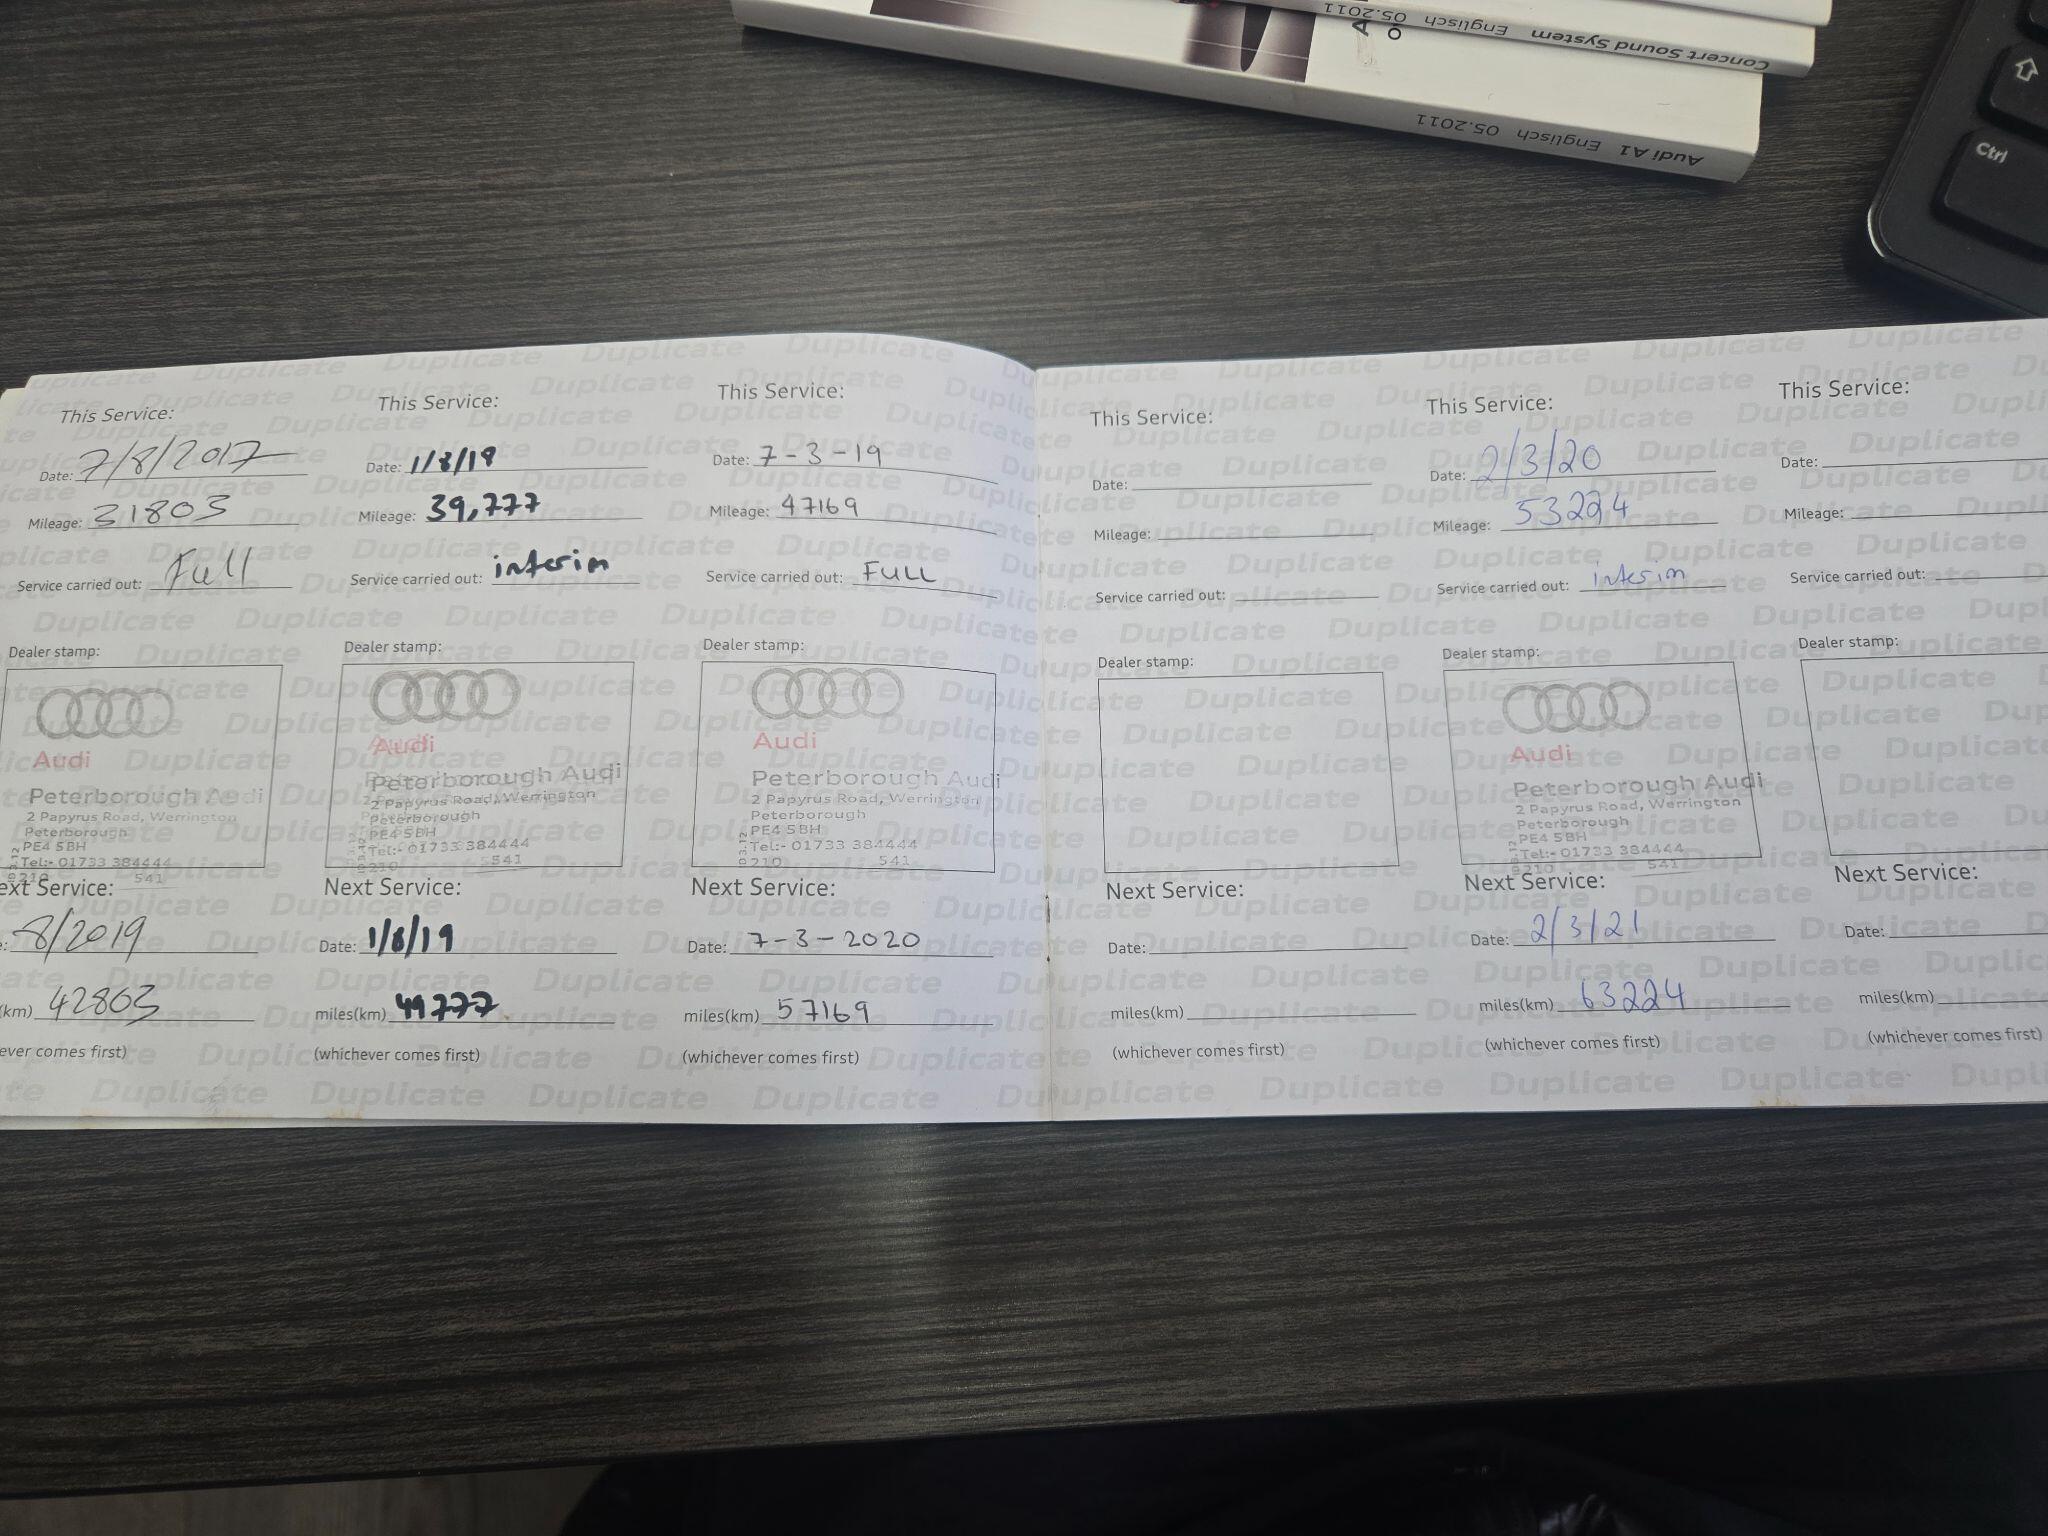 Concert Sound System Englisch 05.2011
Audi A1 Englisch 05.2011
Ctrl
This Service:
Date: 7/8/2017
Mileage: 31803
Service carried out: Full
Dealer stamp:
Audi
Peterborough Audi
2 Papyrus Road, Werrington
Peterborough
PE4 5BH
Tel:- 01733 384444
541
ext Service:
8/2019
km) 42803
ever comes first)
This Service:
Date: 1/8/18
Mileage: 39,777
Service carried out: interim
Dealer stamp:
Audi
Peterborough Audi
2 Papyrus Road, Werrington
Peterborough
PE4 5BH
Tel:- 01733 384444
5541
Next Service:
Date: 1/8/19
miles(km) 49777
(whichever comes first)
This Service:
Date: 7-3-19
Mileage: 47169
Service carried out: FULL
Dealer stamp:
Audi
Peterborough Audi
2 Papyrus Road, Werrington
Peterborough
PE4 5BH
Tel:- 01733 384444
210 541
Next Service:
Date: 7-3-2020
miles(km) 57169
(whichever comes first)
This Service:
Date:
Mileage:
Service carried out:
Dealer stamp:
Next Service:
Date:
miles(km)
(whichever comes first)
This Service:
Date: 2/3/20
Mileage: 53224
Service carried out: interim
Dealer stamp:
Audi
Peterborough Audi
2 Papyrus Road, Werrington
Peterborough
PE4 5BH
Tel:- 01733 384444
210 541
Next Service:
Date: 2/3/21
miles(km) 63224
(whichever comes first)
This Service:
Date:
Mileage:
Service carried out:
Dealer stamp:
Next Service:
Date:
miles(km)
(whichever comes first)
Duplicate